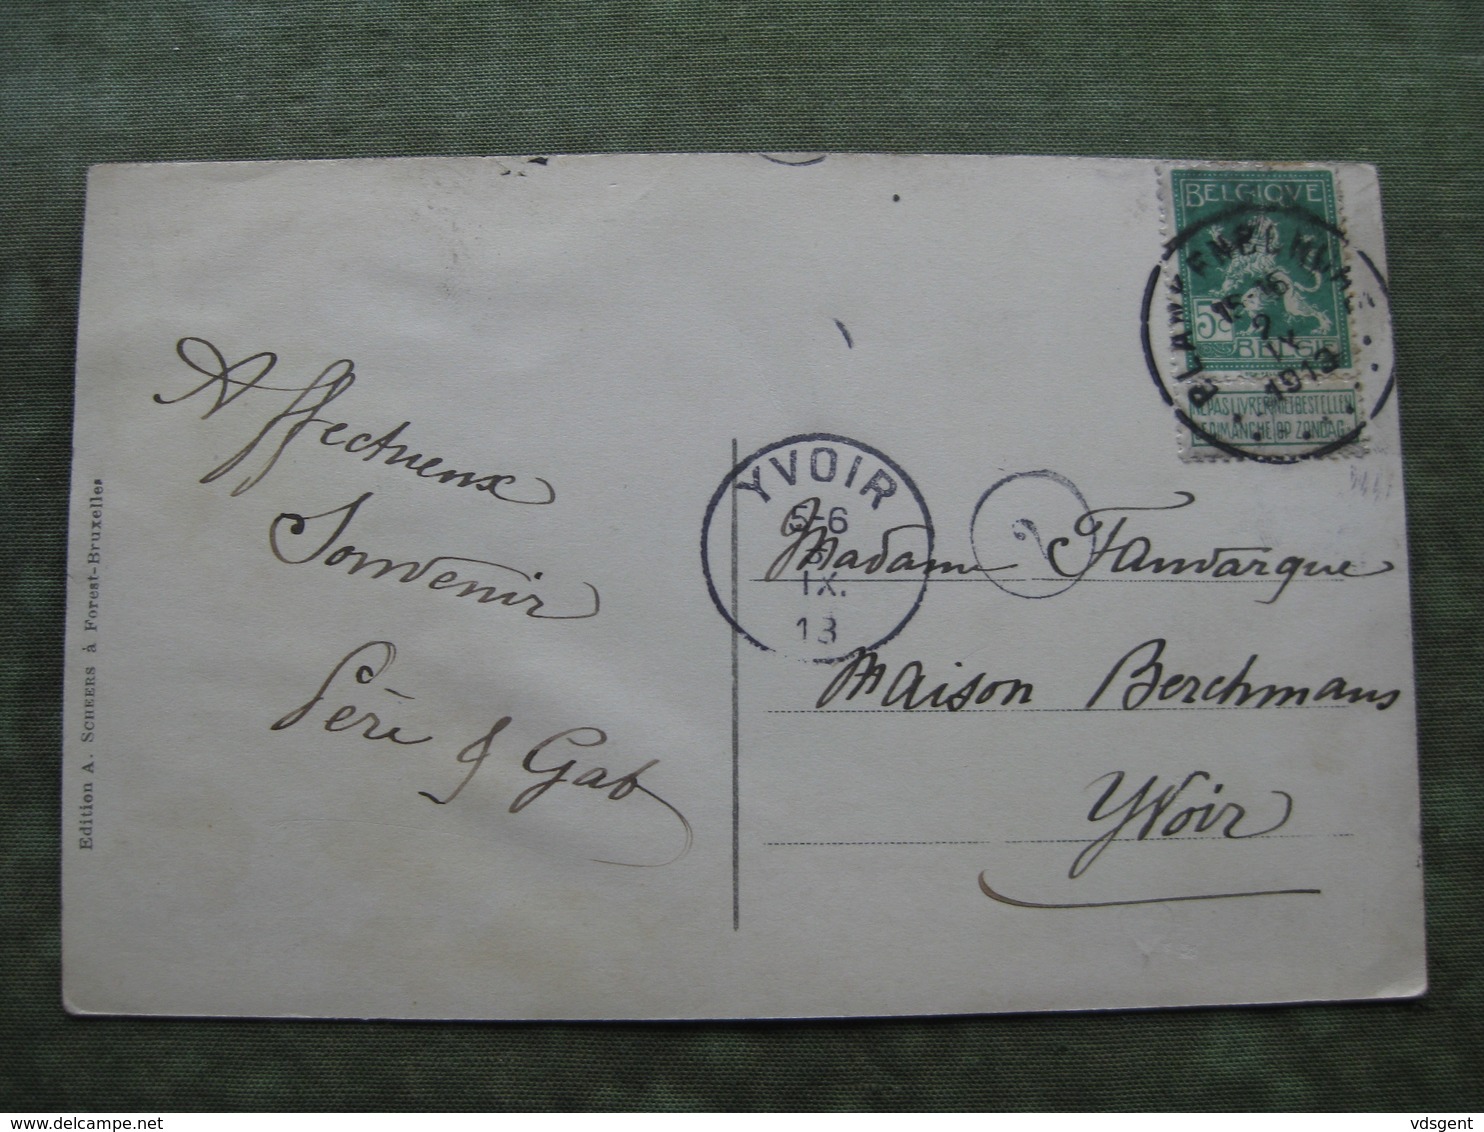 BELGIQUE
5c
BELGIË
NE PAS LIVRER NIET BESTELLEN
LE DIMANCHE OP ZONDAG
15-16
2
IX
1913
YVOIR
5-6
IX.
13
2
Affectueux
Souvenir
Père & Gab
Madame Fauvarque
Maison Berchmans
Yvoir
Edition A. SCHEERS à Forest-Bruxelles
delcampe.net
vdsgent